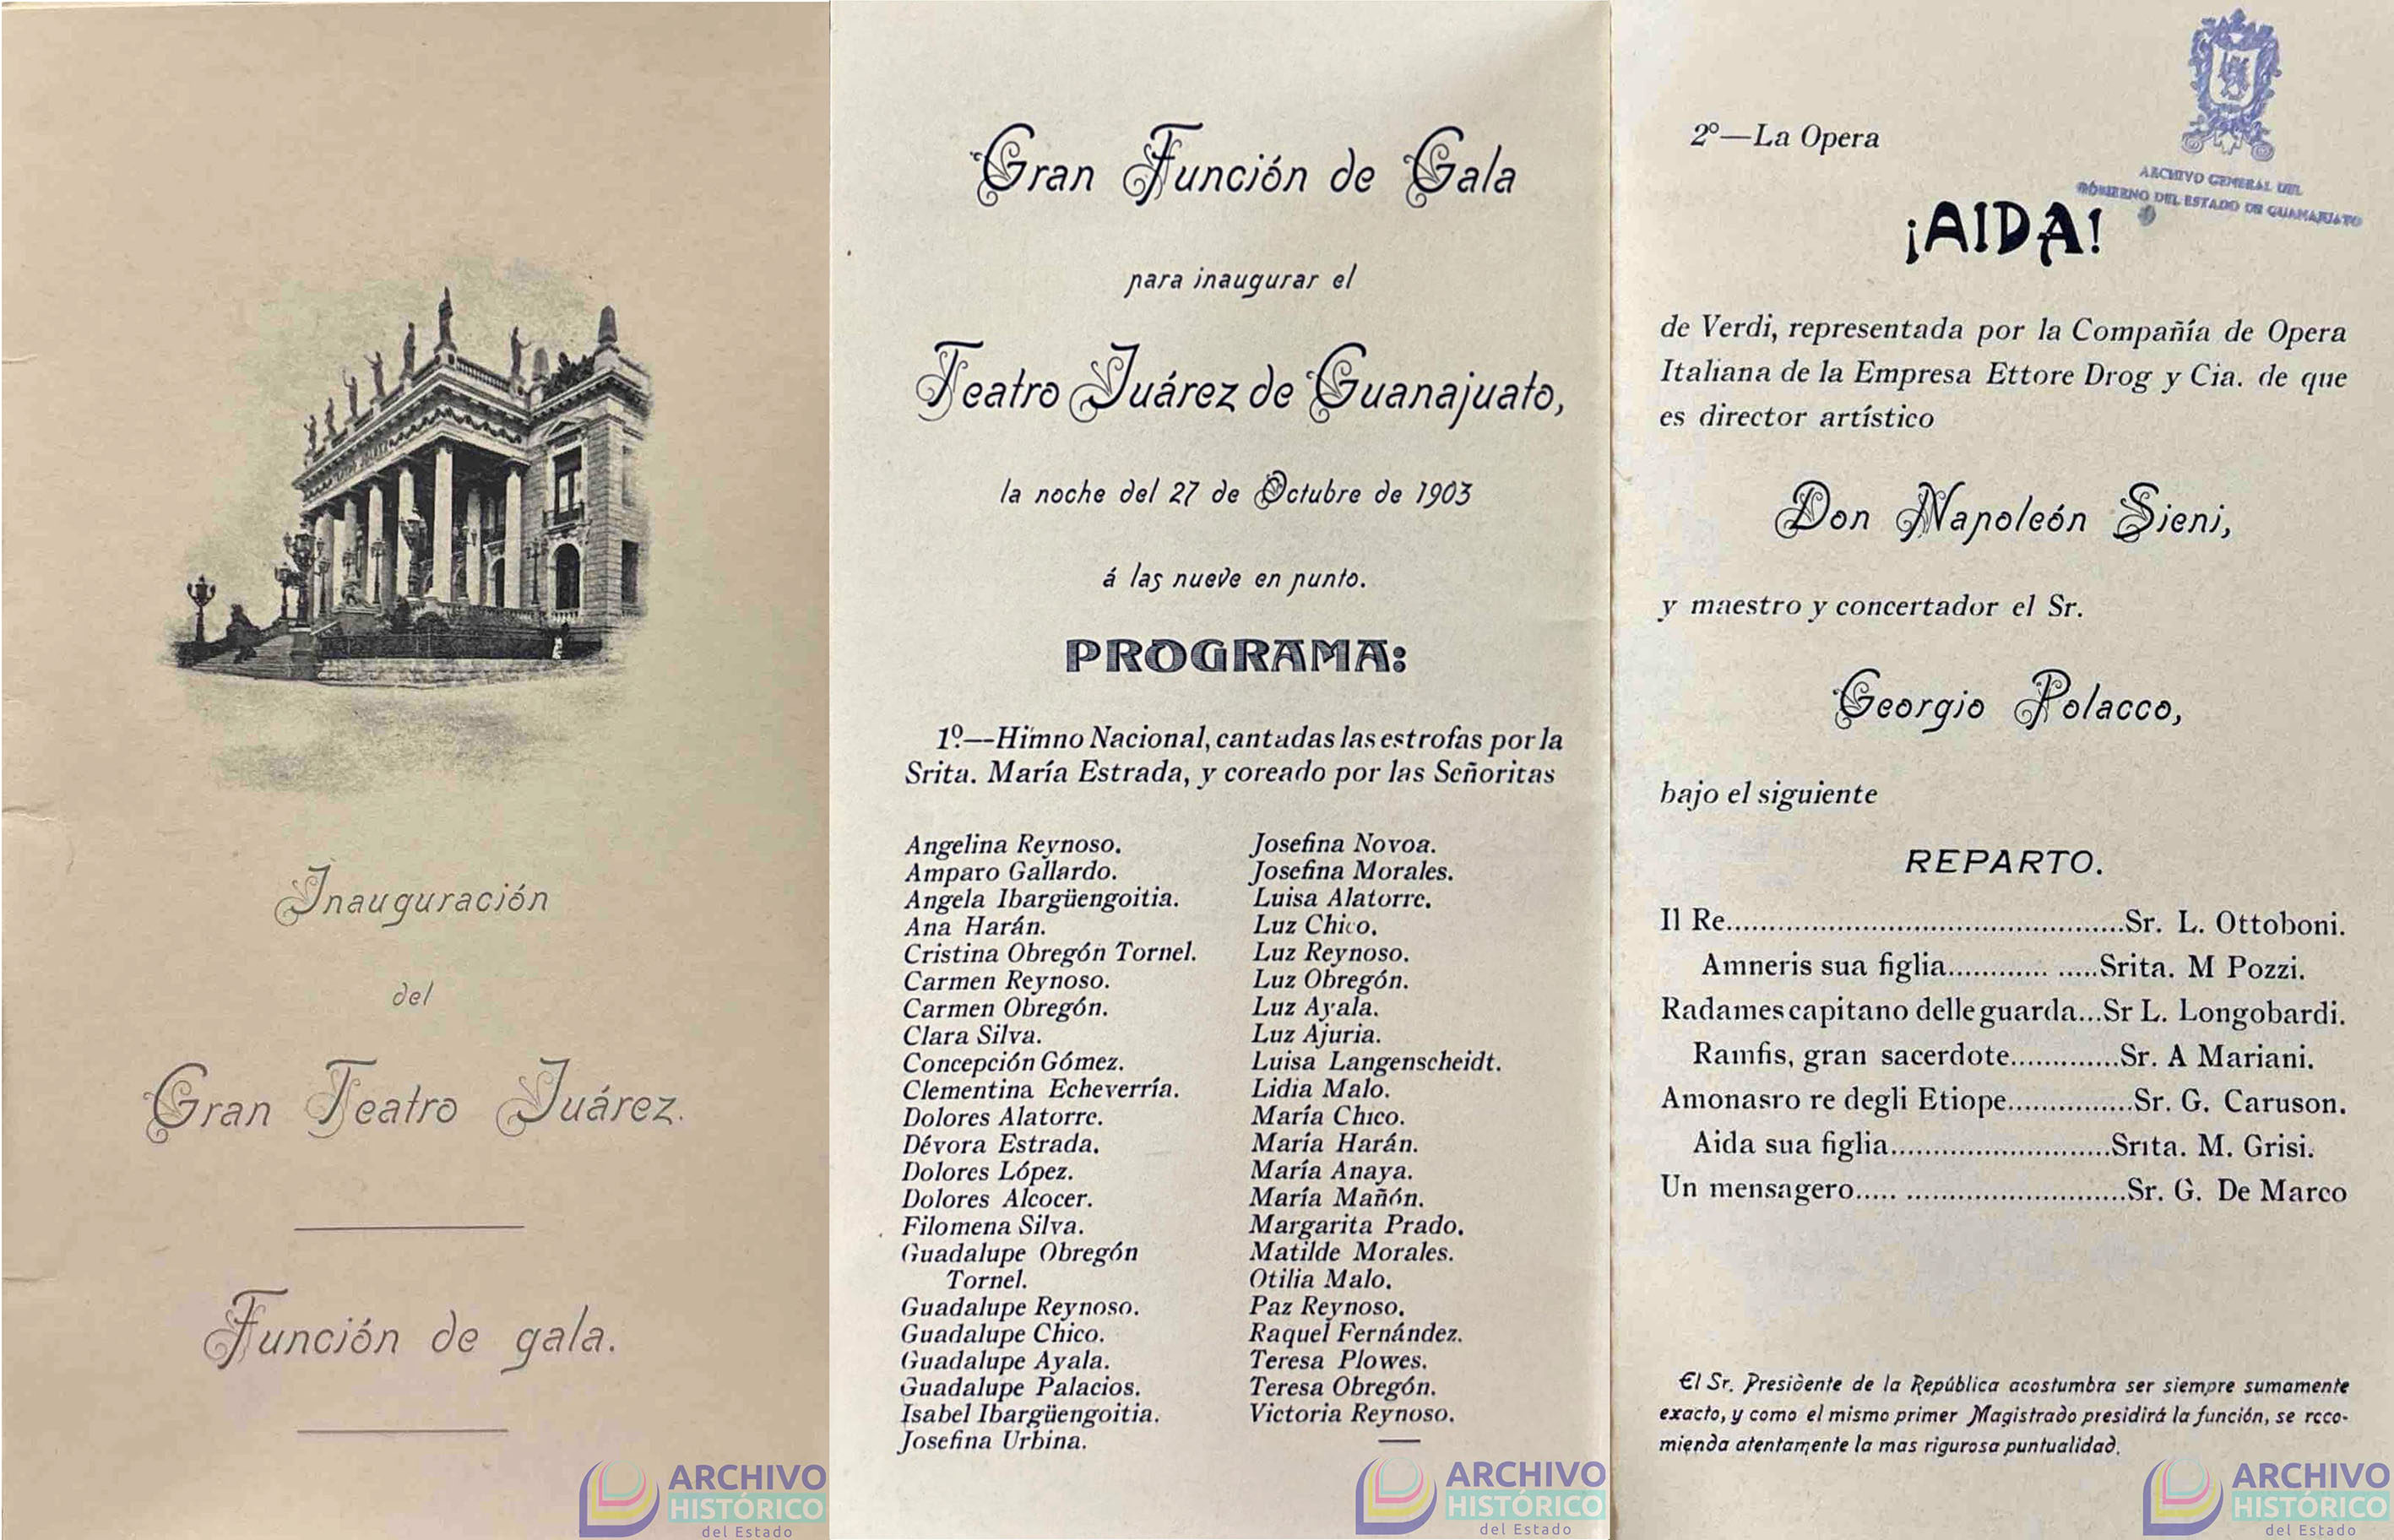 Inauguración
del
Gran Teatro Juárez.
Función de gala.
ARCHIVO
HISTÓRICO
del Estado
Gran Función de Gala
para inaugurar el
Teatro Juárez de Guanajuato,
la noche del 27 de Octubre de 1903
á las nueve en punto.
PROGRAMA:
1º.—Himno Nacional, cantadas las estrofas por la
Srita. María Estrada, y coreado por las Señoritas
Angelina Reynoso.
Amparo Gallardo.
Angela Ibargüengoitia.
Ana Harán.
Cristina Obregón Tornel.
Carmen Reynoso.
Carmen Obregón.
Clara Silva.
Concepción Gómez.
Clementina Echeverría.
Dolores Alatorre.
Dévora Estrada.
Dolores López.
Dolores Alcocer.
Filomena Silva.
Guadalupe Obregón
Tornel.
Guadalupe Reynoso.
Guadalupe Chico.
Guadalupe Ayala.
Guadalupe Palacios.
Isabel Ibargüengoitia.
Josefina Urbina.
Josefina Novoa.
Josefina Morales.
Luisa Alatorre.
Luz Chico.
Luz Reynoso.
Luz Obregón.
Luz Ayala.
Luz Ajuria.
Luisa Langenscheidt.
Lidia Malo.
María Chico.
María Harán.
María Anaya.
María Mañón.
Margarita Prado.
Matilde Morales.
Otilia Malo.
Paz Reynoso.
Raquel Fernández.
Teresa Plowes.
Teresa Obregón.
Victoria Reynoso.
ARCHIVO
HISTÓRICO
del Estado
ARCHIVO GENERAL DEL
GOBIERNO DEL ESTADO DE GUANAJUATO
2º—La Opera
¡AIDA!
de Verdi, representada por la Compañía de Opera
Italiana de la Empresa Ettore Drog y Cia. de que
es director artístico
Don Napoleón Sieni,
y maestro y concertador el Sr.
Georgio Polacco,
bajo el siguiente
REPARTO.
Il Re...............................................Sr. L. Ottoboni.
Amneris sua figlia............ .....Srita. M Pozzi.
Radames capitano delle guarda...Sr L. Longobardi.
Ramfis, gran sacerdote.............Sr. A Mariani.
Amonasro re degli Etiope...............Sr. G. Caruson.
Aida sua figlia..........................Srita. M. Grisi.
Un mensagero..... ..........................Sr. G. De Marco
El Sr. Presidente de la República acostumbra ser siempre sumamente
exacto, y como el mismo primer Magistrado presidirá la función, se reco-
mienda atentamente la mas rigurosa puntualidad.
ARCHIVO
HISTÓRICO
del Estado